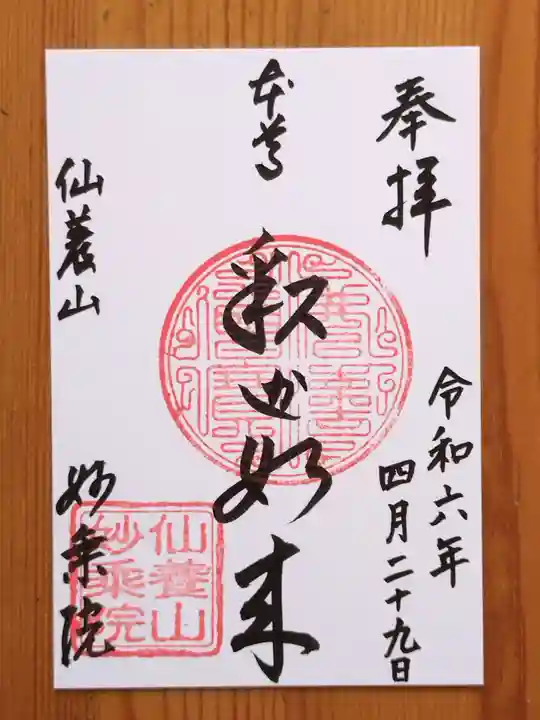 奉拝
令和六年
四月二十九日
本尊
釈迦如来
仙養山
妙乗院
仙養山
妙乗院